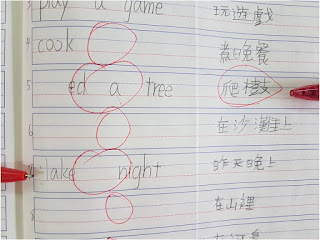 3 play a game 玩遊戲
4 cook 煮晚餐
5 ed a tree 爬樹
6 在沙灘上
lake night 昨天晚上
8 在山裡